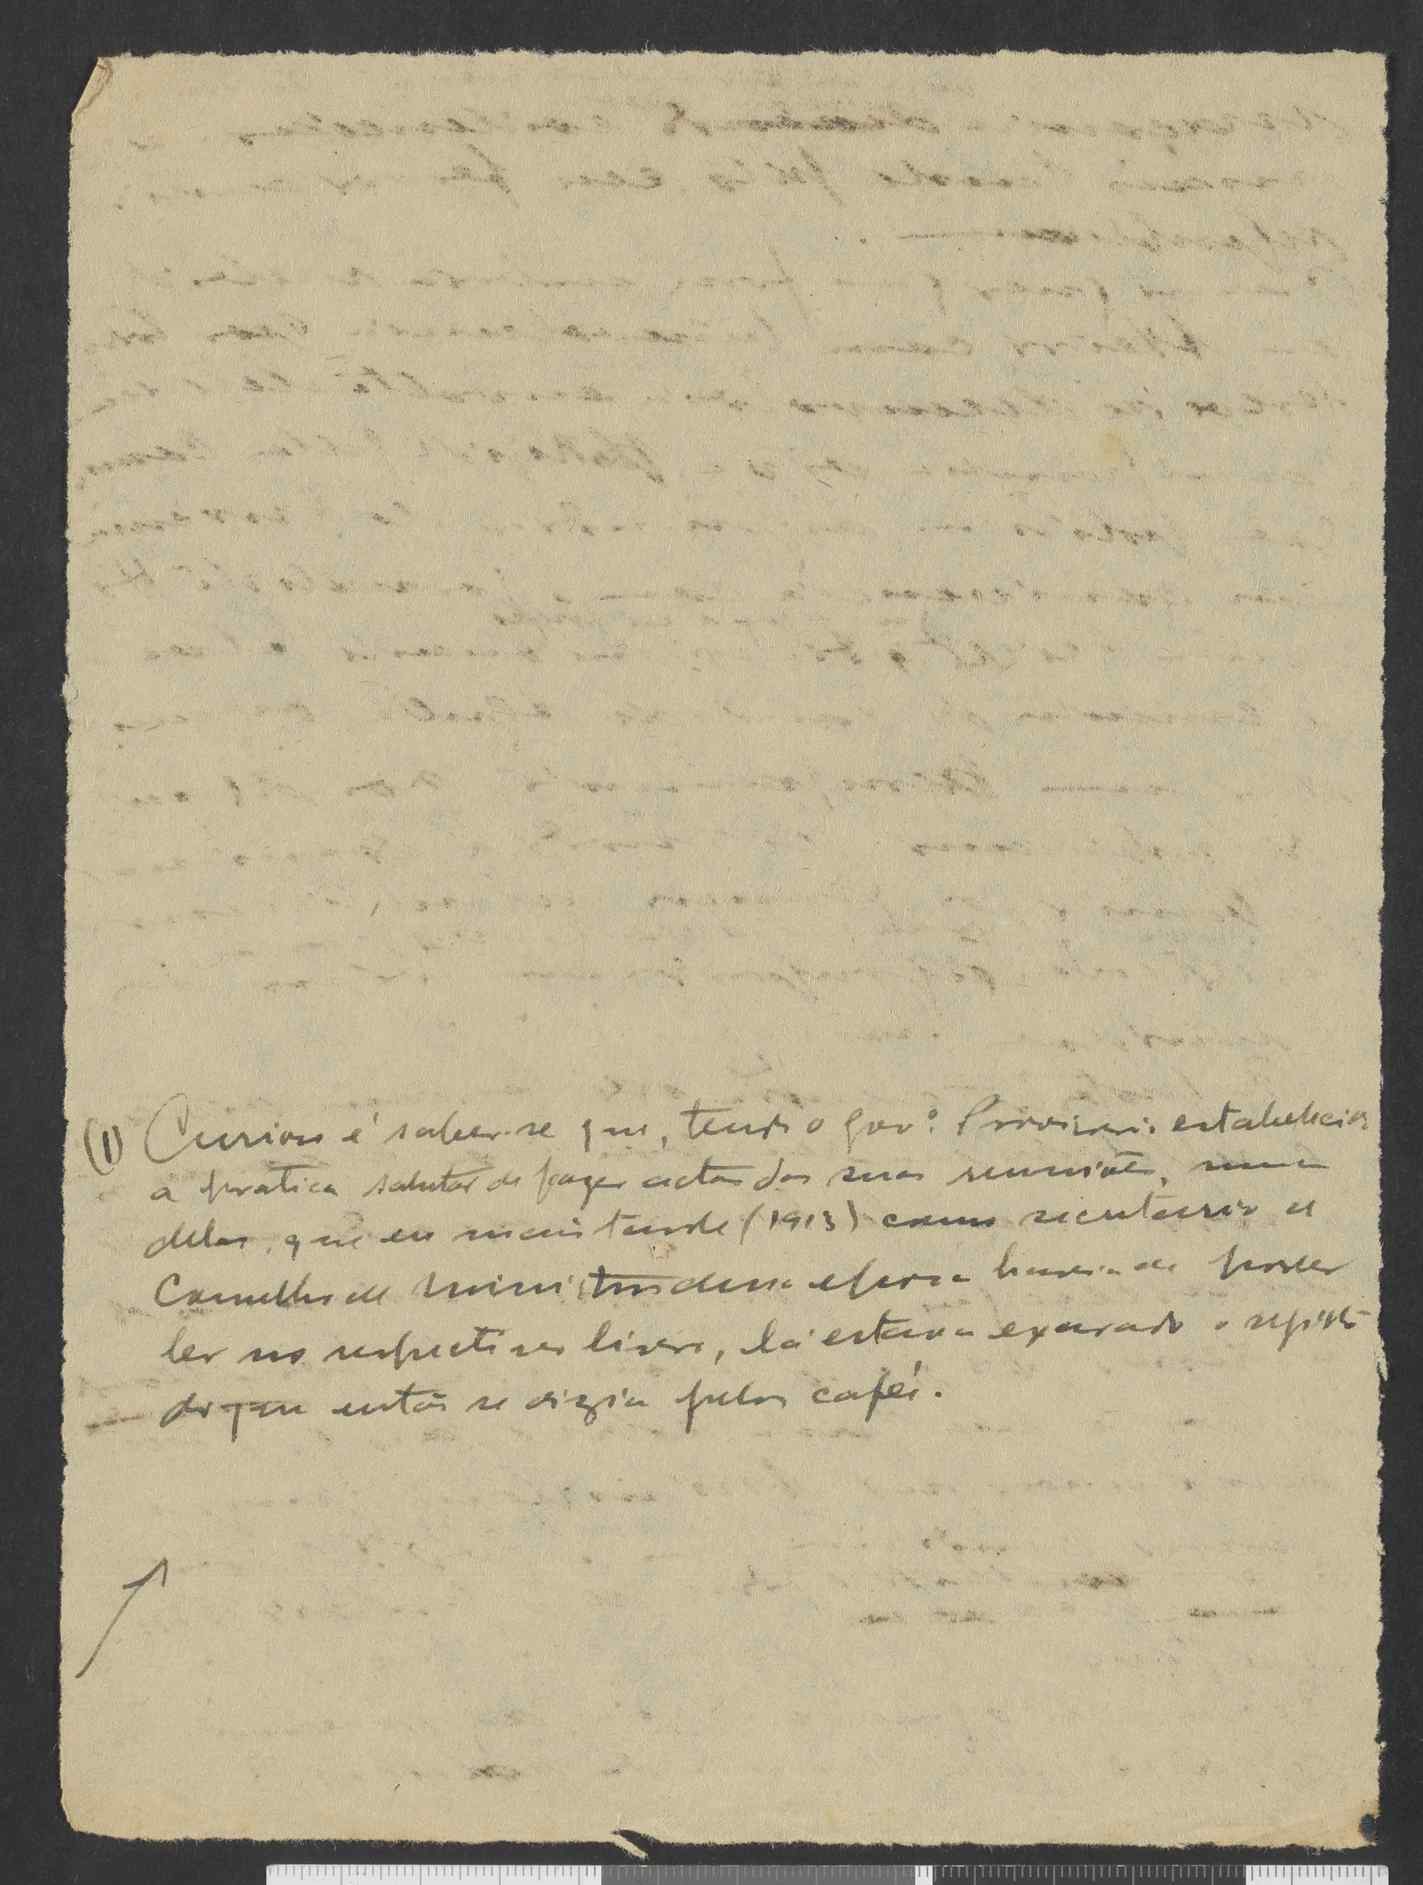 (1) Curioso é saber-se que, tendo o gov.º Provisorio estabelecido
a pratica salutar de fazer actas das suas reuniões, numa
delas, que eu mais tarde (1913) como secretario do
Conselho de Ministros dessa epoca havia de poder
ler no respectivo livro, lá estava exarado o registo
do que então se dizia pelos cafés.